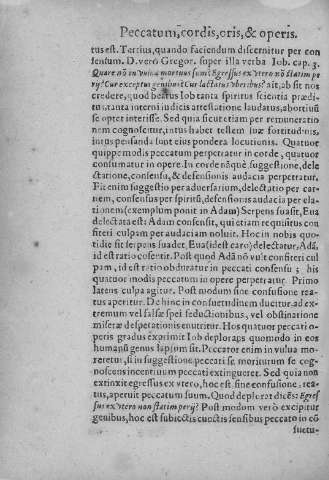 Peccatum, cordis, oris, & operis.
tus est. Tertius, quando faciendum discernitur per con
sensum. D. verò Gregor. super illa verba Iob. cap. 3.
Quare nō in vulua mortuus sum? Egressus ex vtero nō statim pe
rij? Cur exceptus genibus? Cur lactatus vberibus? ait, ab sit nos
credere, quod beatus Iob tanta spiritus scientia prædi-
tus, tanta interni iudicis attestatione laudatus, abortiuū
se optet interisse. Sed quia sicut etiam per remuneratio
nem cognoscitur, intus habet testem suæ fortitudinis,
intus pensanda sunt eius pondera locutionis. Quatuor
quippe modis peccatum perpetratur in corde, quatuor
consumatur in opere. In corde nāque suggestione, dele
ctatione, consensu, & defensionis audacia perpetratur.
Fit enim suggestio per aduersarium, delectatio per car-
nem, consensus per spiritū, defensionis audacia per ela-
tionem (exemplum ponit in Adam) Serpens suasit, Eua
delectata est: Adam consensit, qui etiam requisitus con
fiteri culpam per audaciam noluit. Hoc in nobis quo-
tidie fit serpens suadet, Eua (idest caro) delectatur, Adā,
id est ratio cosentit. Post quod Adā nō vult confiteri cul
pam, id est ratio obduratur in peccati consensu; his
quatuor modis peccatum in opere perpetratur. Primo
latens culpa agitur. Post modum sine confusione rea-
tus aperitur. De hinc in consuetudinem ducitur: ad ex-
tremum vel falsæ spei seductionibus, vel obstinatione
miseræ desperationis enutritur. Hos quatuor peccati o-
peris gradus exprimit Iob deplorans quomodo in eos
humanū genus lapsum sit. Peccator enim in vulua mo-
reretur, si in suggestione peccati se moriturum se cog-
noscens incentiuum peccati extingueret. Sed quia non
extinxit egressus ex vtero, hoc est sine confusione, rea-
tus, aperuit peccatum suum. Quod deplorat dicēs: Egres
sus ex vtero non statim perij? Post modum verò excipitur
genibus, hoc est subiectis cunctis sensibus peccato in cō
suetu-